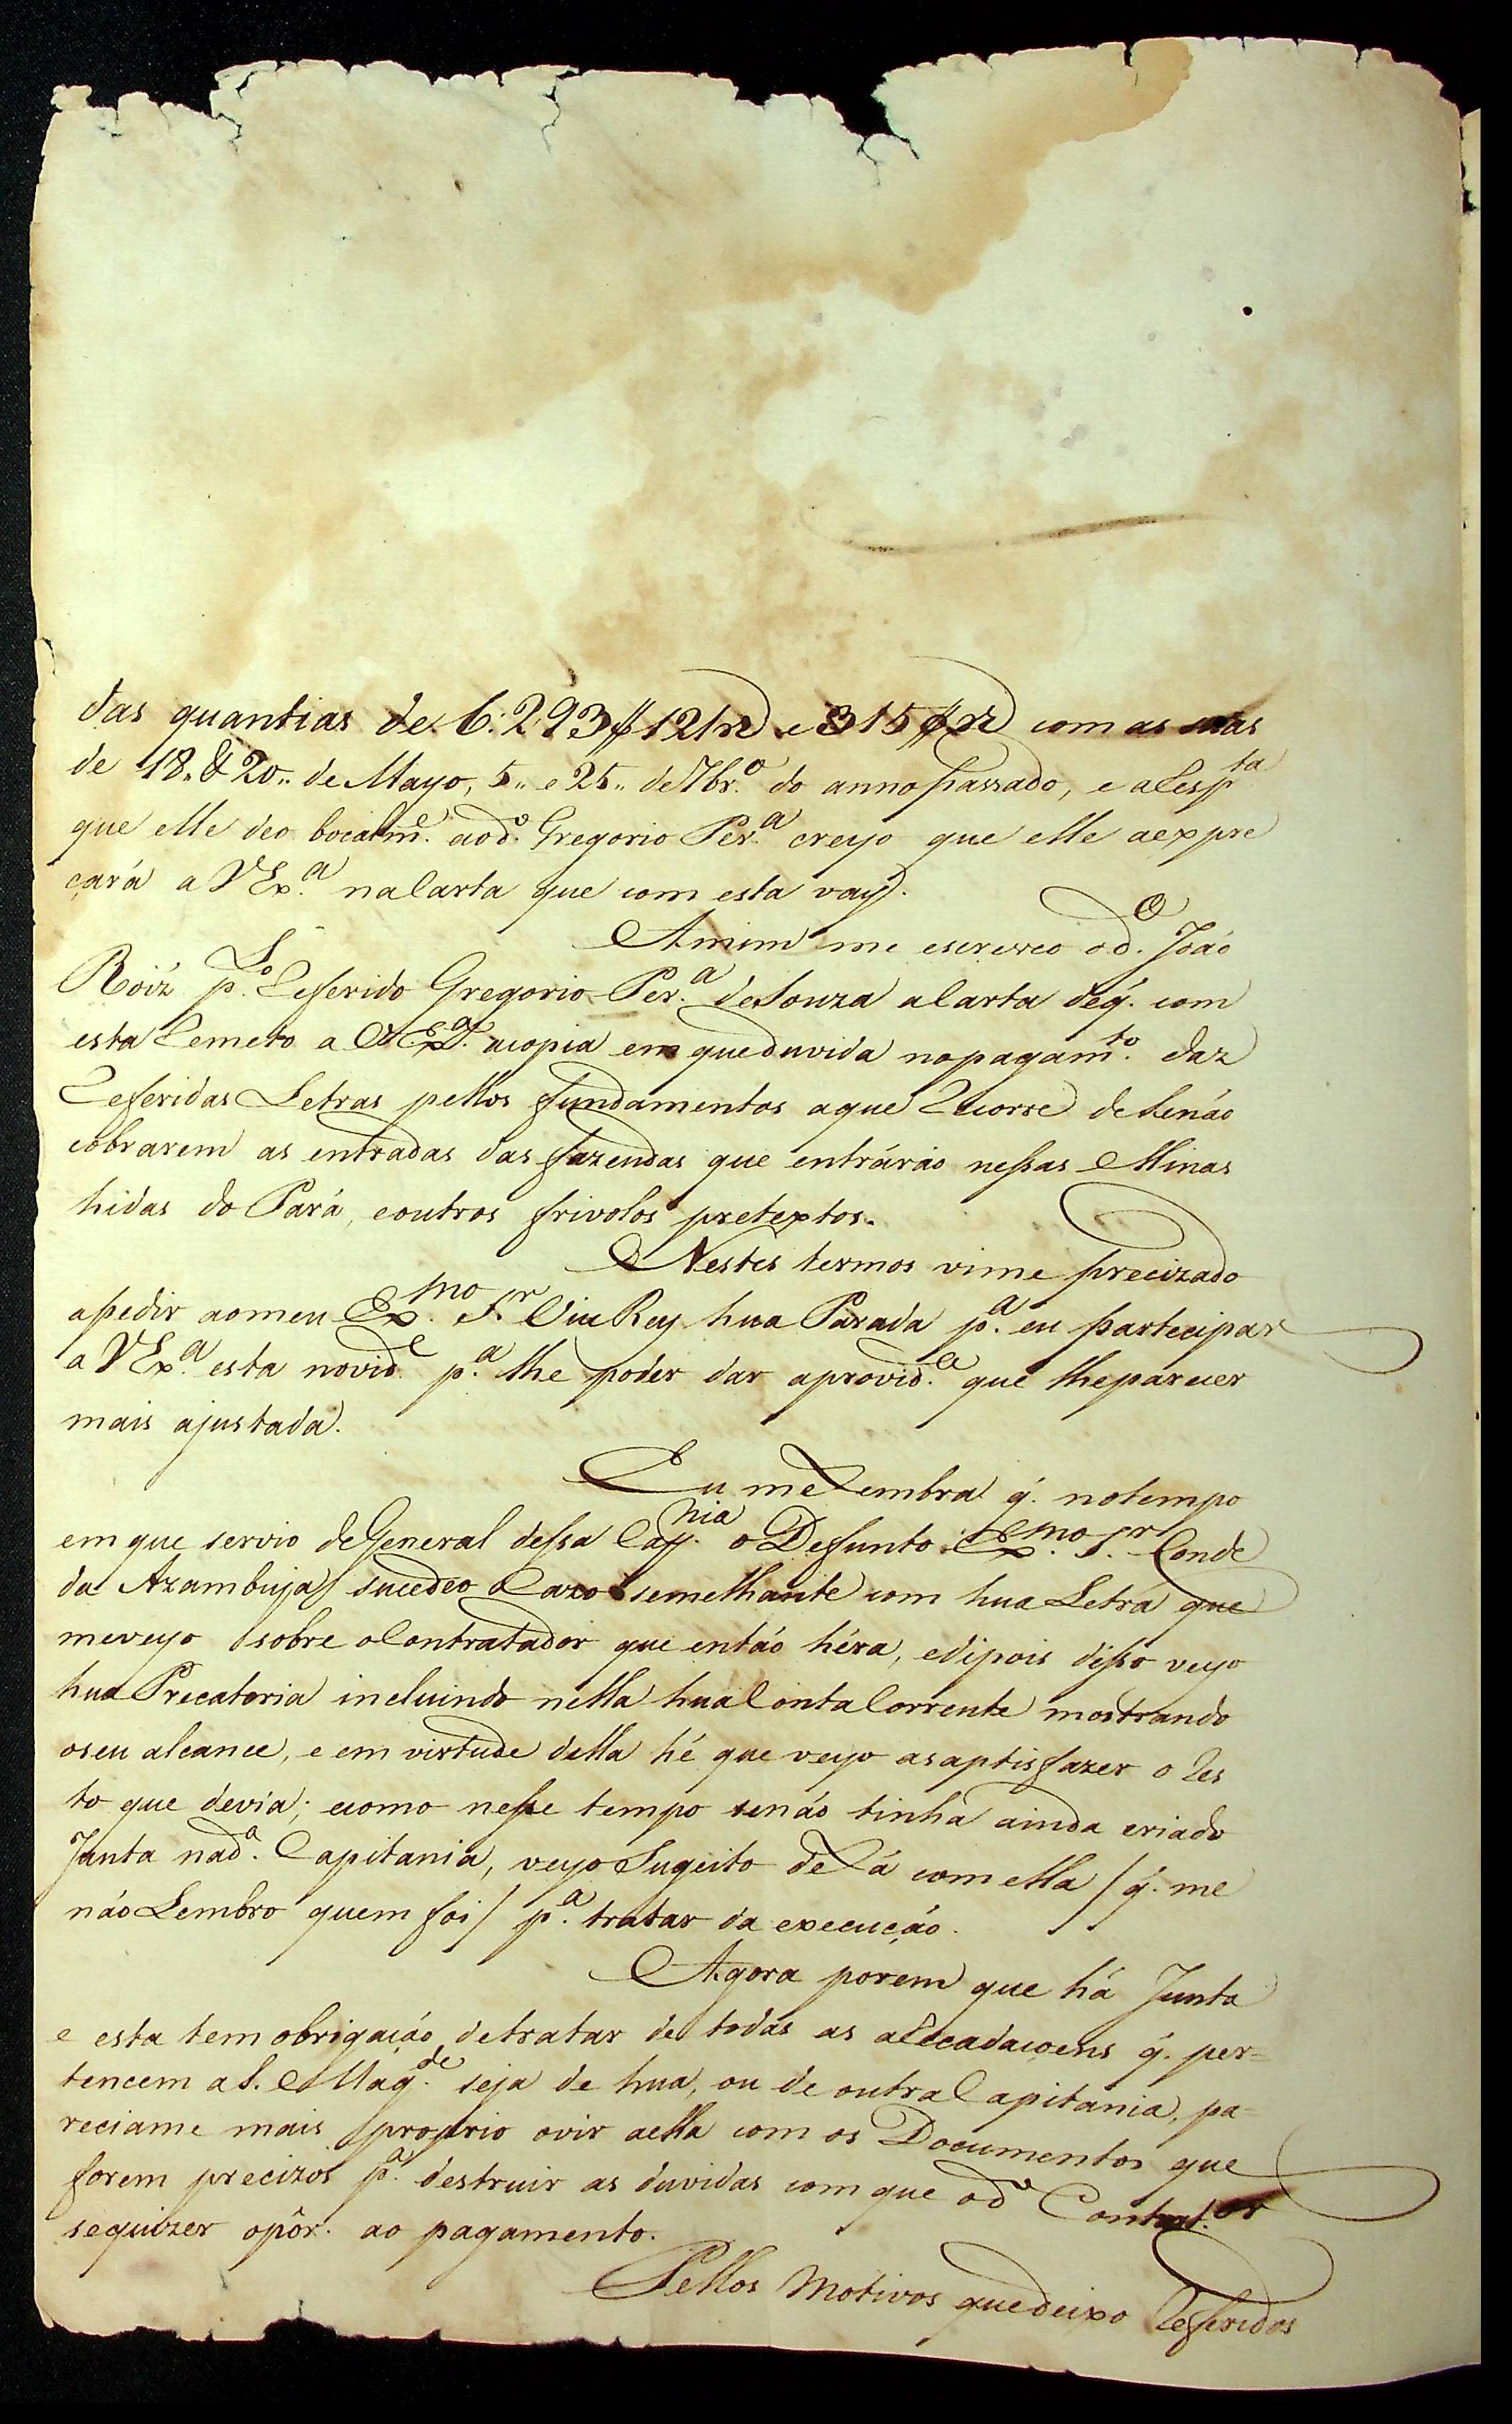 das quantias de 6:293$121 rs e 315$ rs com as suas
de 18,, & 20,, de Mayo, 5,, e 25,, de 7br.o do anno passado, e a Resp.ta
que elle deo bocalm.e ao d.o Gregorio Per.a creyo que elle a expre
çará a VEx.a na Carta que com esta vay.
Amim me escreveo o d.o João
Roiz p.lo Referido Gregorio Per.a de Souza a Carta de q. com
esta Remeto a VEx.a a copia em que duvida no pagam.to daz
Referidas Letras pellos fundamentos a que Recorre de se não
cobrarem as entradas das fazendas que entrárão nessas Minas
hidas do Pará, e outros frivolos pretextos.
Nestes termos vime precizado
a pedir ao meu Ex.mo S.r Vice Rey hua Parada p.a eu partecipar
a VEx.a esta novid.e p.a lhe poder dar a provid.a que lhe parecer
mais ajustada.
Eu me Lembra q. no tempo
em que servio de General dessa Cap.nia o Defunto Ex.mo S.r Conde
da Azambuja sucedeo o Cazo semelhante com hua Letra que
me veyo sobre o Contratador que então héra, e dipois disso veyo
hua Precatoria incluindo nella hua Conta Corrente mostrando
o seu alcance, e em virtude della hé que veyo a saptisfazer o Res
to que devia; e como nesse tempo senão tinha ainda criado
Junta na d.a Capitania, veyo Sugeito de Lá com ella / q. me
não Lembro quem foi / p.a tratar da execução.
Agora porem que há Junta
e esta tem obrigação de tratar de todas as aRecadaçoens q. per=
tencem a S. Mag.de seja de hua, ou de outra Capitania, pa-
reciame mais proprio ovir a ella com os Documentos que
forem precizos p.a destruir as duvidas com que o d.o Contrat.or
se quizer opôr. ao pagamento.
Pellos Motivos que deixo Referidos